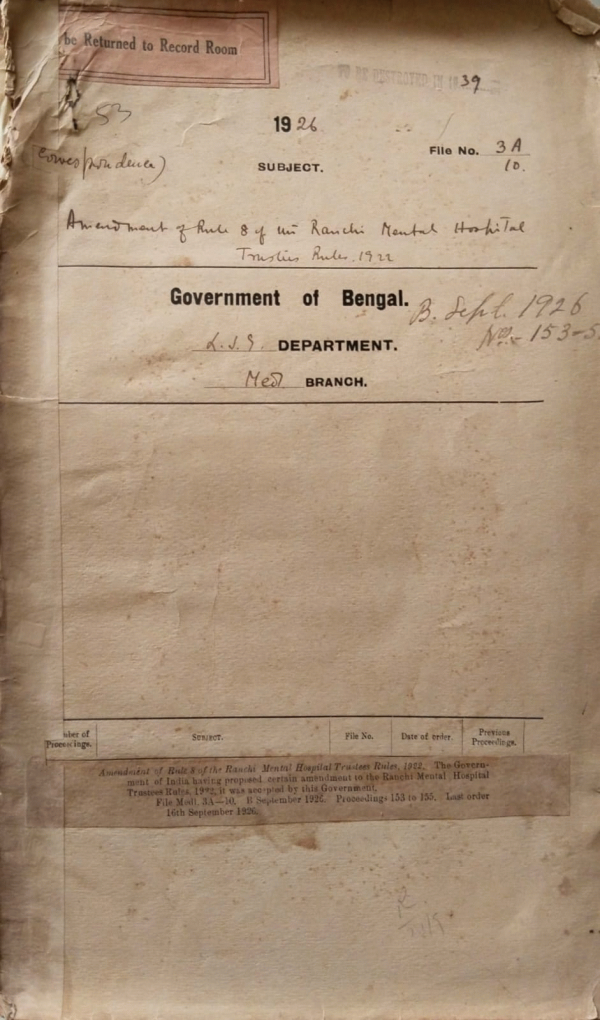 be Returned to Record Room
TO BE DESTROYED IN 1939
53
1926
(Correspondence)
File No. 3A
10.
SUBJECT.
Amendment of Rule 8 of the Ranchi Mental Hospital
Trustees Rules. 1922
Government of Bengal.
B. Sept. 1926
Nos. 153-5
L.S.G. DEPARTMENT.
Medl BRANCH.
mber of
Proceedings.
SUBJECT.
File No.
Date of order.
Previous
Proceedings.
Amendment of Rule 8 of the Ranchi Mental Hospital Trustees Rules, 1922. The Govern-
ment of India having proposed certain amendment to the Ranchi Mental Hospital
Trustees Rules, 1922, it was accepted by this Government.
File Medl. 3A—10. B September 1926. Proceedings 153 to 155. Last order
16th September 1926.